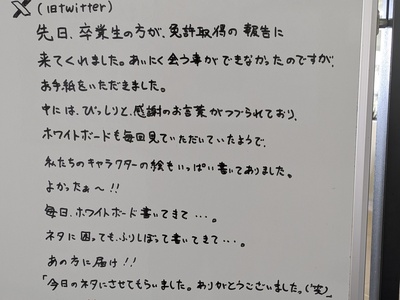 X (旧twitter)
先日、卒業生の方が、免許取得の報告に
来てくれました。あいにく会う事ができなかったのですが、
お手紙をいただきました。
中には、びっしりと、感謝のお言葉がつづられており、
ホワイトボードも毎回見ていただいていたようで、
私たちのキャラクターの絵もいっぱい書いてありました。
よかったぁ〜!!
毎日、ホワイトボード書いてきて・・・。
ネタに困っても、ふりしぼって書いてきて・・・。
あの方に届け!!
「今日のネタにさせてもらいました。ありがとうございました。(笑)